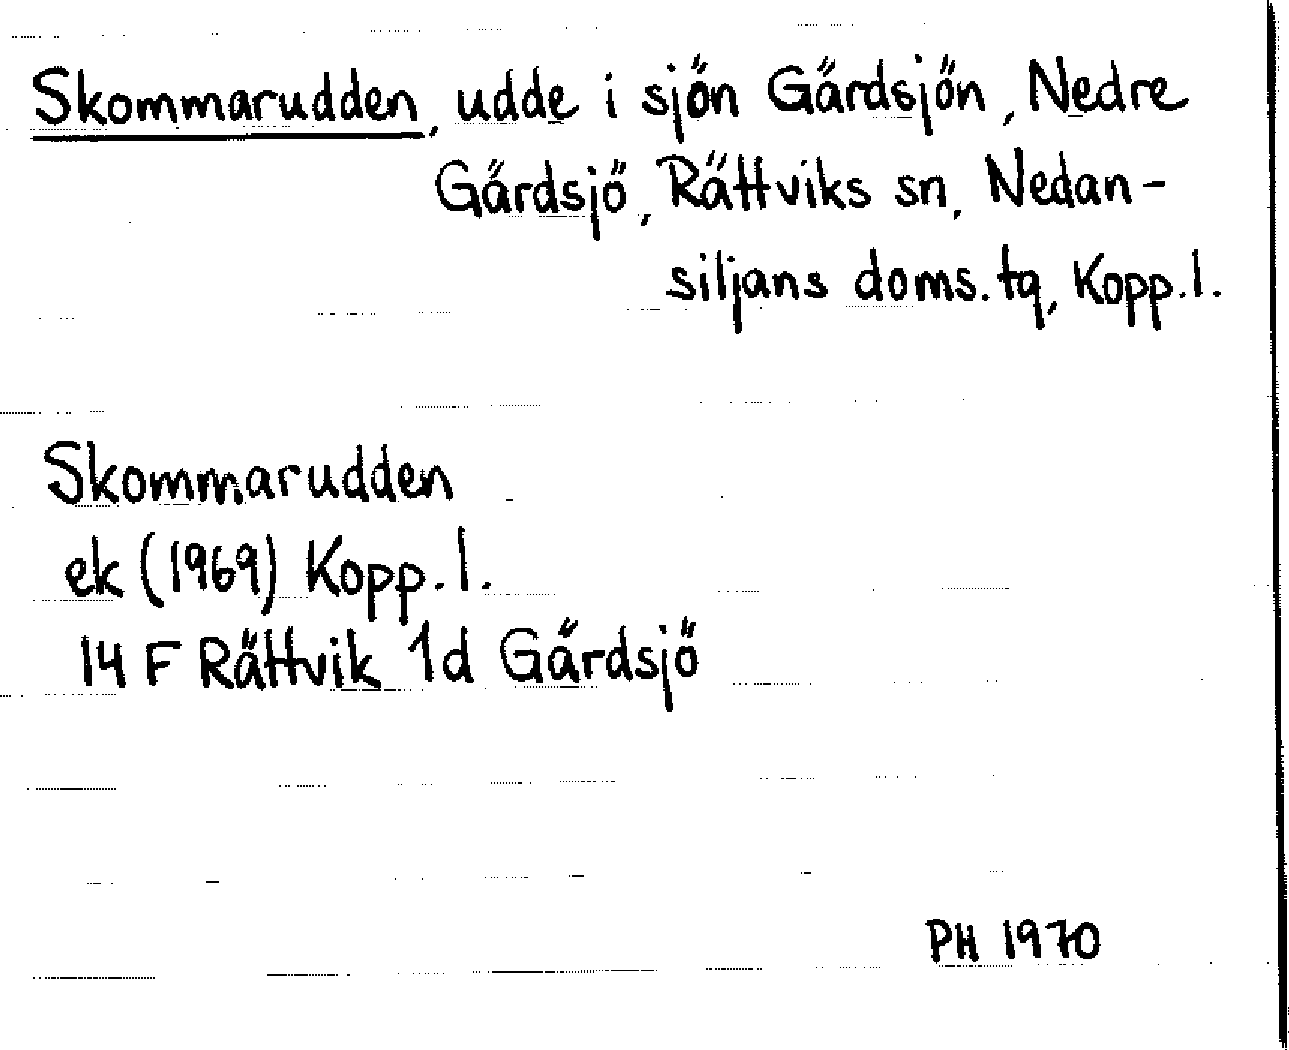 Skommarudden, udde i sjön Gärdsjön, Nedre
Gärdsjö, Rättviks sn, Nedan-
siljans doms. tg, Kopp. l.
Skommarudden
ek (1969) Kopp. l.
14 F Rättvik 1d Gärdsjö
PH 1970